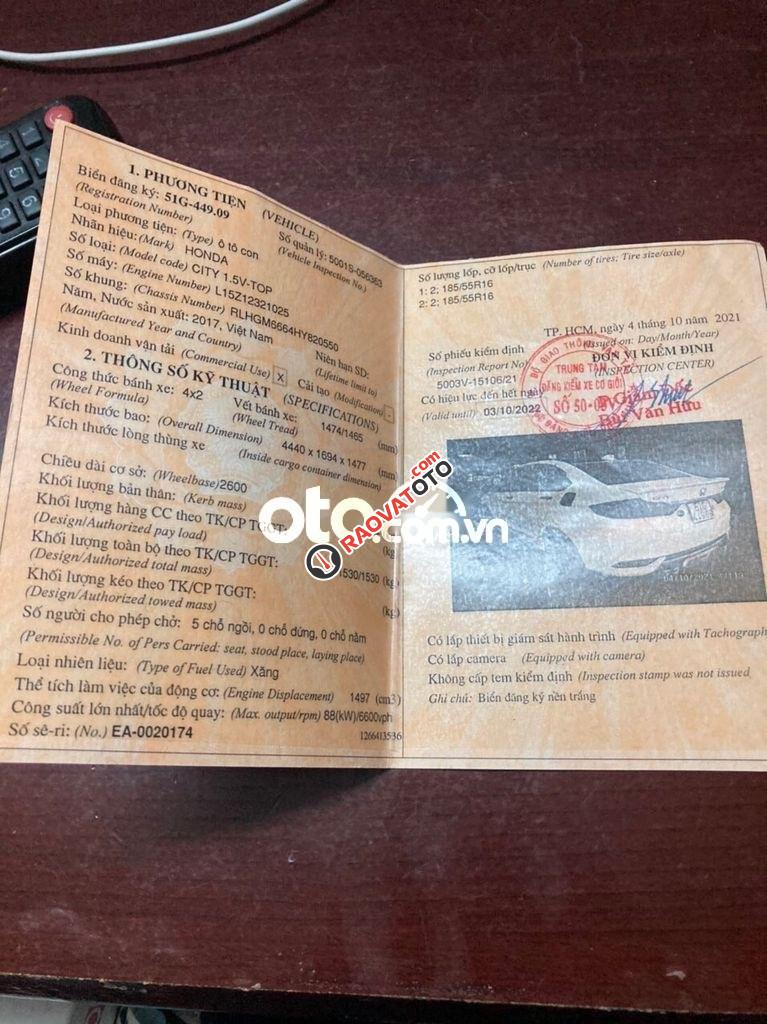 1. PHƯƠNG TIỆN (VEHICLE)
Biển đăng ký: 51G-449.09
(Registration Number)
Số quản lý: 5001S-056363
(Vehicle Inspection No.)
Loại phương tiện: (Type) ô tô con
Nhãn hiệu: (Mark) HONDA
Số loại: (Model code) CITY 1.5V-TOP
Số máy: (Engine Number) L15Z12321025
Số khung: (Chassis Number) RLHGM6664HY820550
Năm, Nước sản xuất: 2017, Việt Nam
(Manufactured Year and Country)
Niên hạn SD:
(Lifetime limit to)
Kinh doanh vận tải (Commercial Use) X Cải tạo (Modification) -
2. THÔNG SỐ KỸ THUẬT (SPECIFICATIONS)
Công thức bánh xe: 4x2
(Wheel Formula)
Vết bánh xe: 1474/1465 (mm)
(Wheel Tread)
Kích thước bao: (Overall Dimension) 4440 x 1694 x 1477 (mm)
Kích thước lòng thùng xe (Inside cargo container dimension)
Chiều dài cơ sở: (Wheelbase)2600
Khối lượng bản thân: (Kerb mass)
Khối lượng hàng CC theo TK/CP TGGT:
(Design/Authorized pay load)
Khối lượng toàn bộ theo TK/CP TGGT: 1530/1530 (kg)
(Design/Authorized total mass)
Khối lượng kéo theo TK/CP TGGT: (kg)
(Design/Authorized towed mass)
Số người cho phép chở: 5 chỗ ngồi, 0 chỗ đứng, 0 chỗ nằm
(Permissible No. of Pers Carried: seat, stood place, laying place)
Loại nhiên liệu: (Type of Fuel Used) Xăng
Thể tích làm việc của động cơ: (Engine Displacement) 1497 (cm3)
Công suất lớn nhất/tốc độ quay: (Max. output/rpm) 88(kW)/6600vph
Số sê-ri: (No.) EA-0020174
1266413536
Số lượng lốp, cỡ lốp/trục (Number of tires; Tire size/axle)
1: 2; 185/55R16
2: 2; 185/55R16
TP. HCM, ngày 4 tháng 10 năm 2021
(Issued on: Day/Month/Year)
Số phiếu kiểm định
(Inspection Report No)
5003V-15106/21
ĐƠN VỊ KIỂM ĐỊNH
(INSPECTION CENTER)
Có hiệu lực đến hết ngày
(Valid until) 03/10/2022
BỘ GIAO THÔNG
TRUNG TÂM
ĐĂNG KIỂM XE CƠ GIỚI
SỐ 50-03
Văn Hữu
Có lắp thiết bị giám sát hành trình (Equipped with Tachograph
Có lắp camera (Equipped with camera)
Không cấp tem kiểm định (Inspection stamp was not issued
Ghi chú: Biển đăng ký nền trắng
oto.com.vn
RAOVATOTO.COM